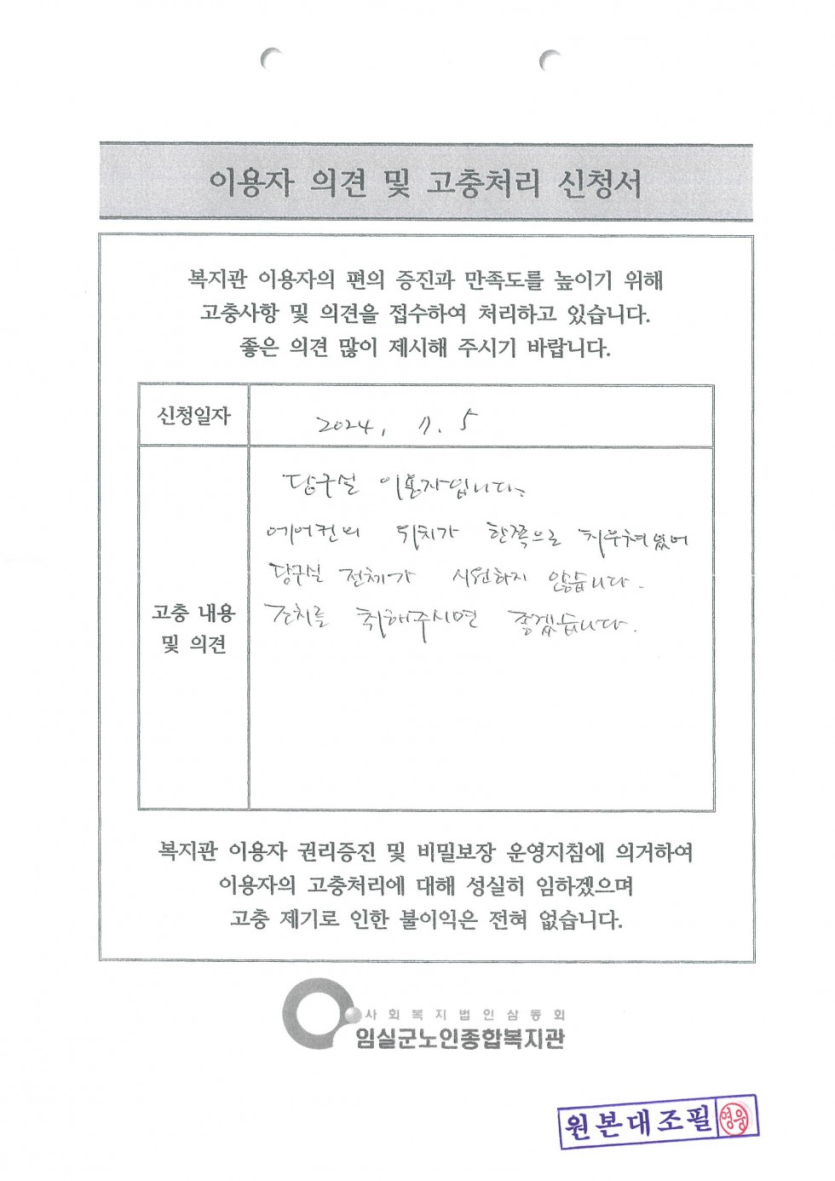 이용자 의견 및 고충처리 신청서
복지관 이용자의 편의 증진과 만족도를 높이기 위해
고충사항 및 의견을 접수하여 처리하고 있습니다.
좋은 의견 많이 제시해 주시기 바랍니다.
신청일자
2024, 7. 5
고충 내용
및 의견
당구실 이용자입니다.
에어컨의 위치가 한쪽으로 치우쳐있어
당구실 전체가 시원하지 않습니다.
조치를 취해주시면 좋겠습니다.
복지관 이용자 권리증진 및 비밀보장 운영지침에 의거하여
이용자의 고충처리에 대해 성실히 임하겠으며
고충 제기로 인한 불이익은 전혀 없습니다.
사회복지법인삼동회
임실군노인종합복지관
원본대조필 영웅